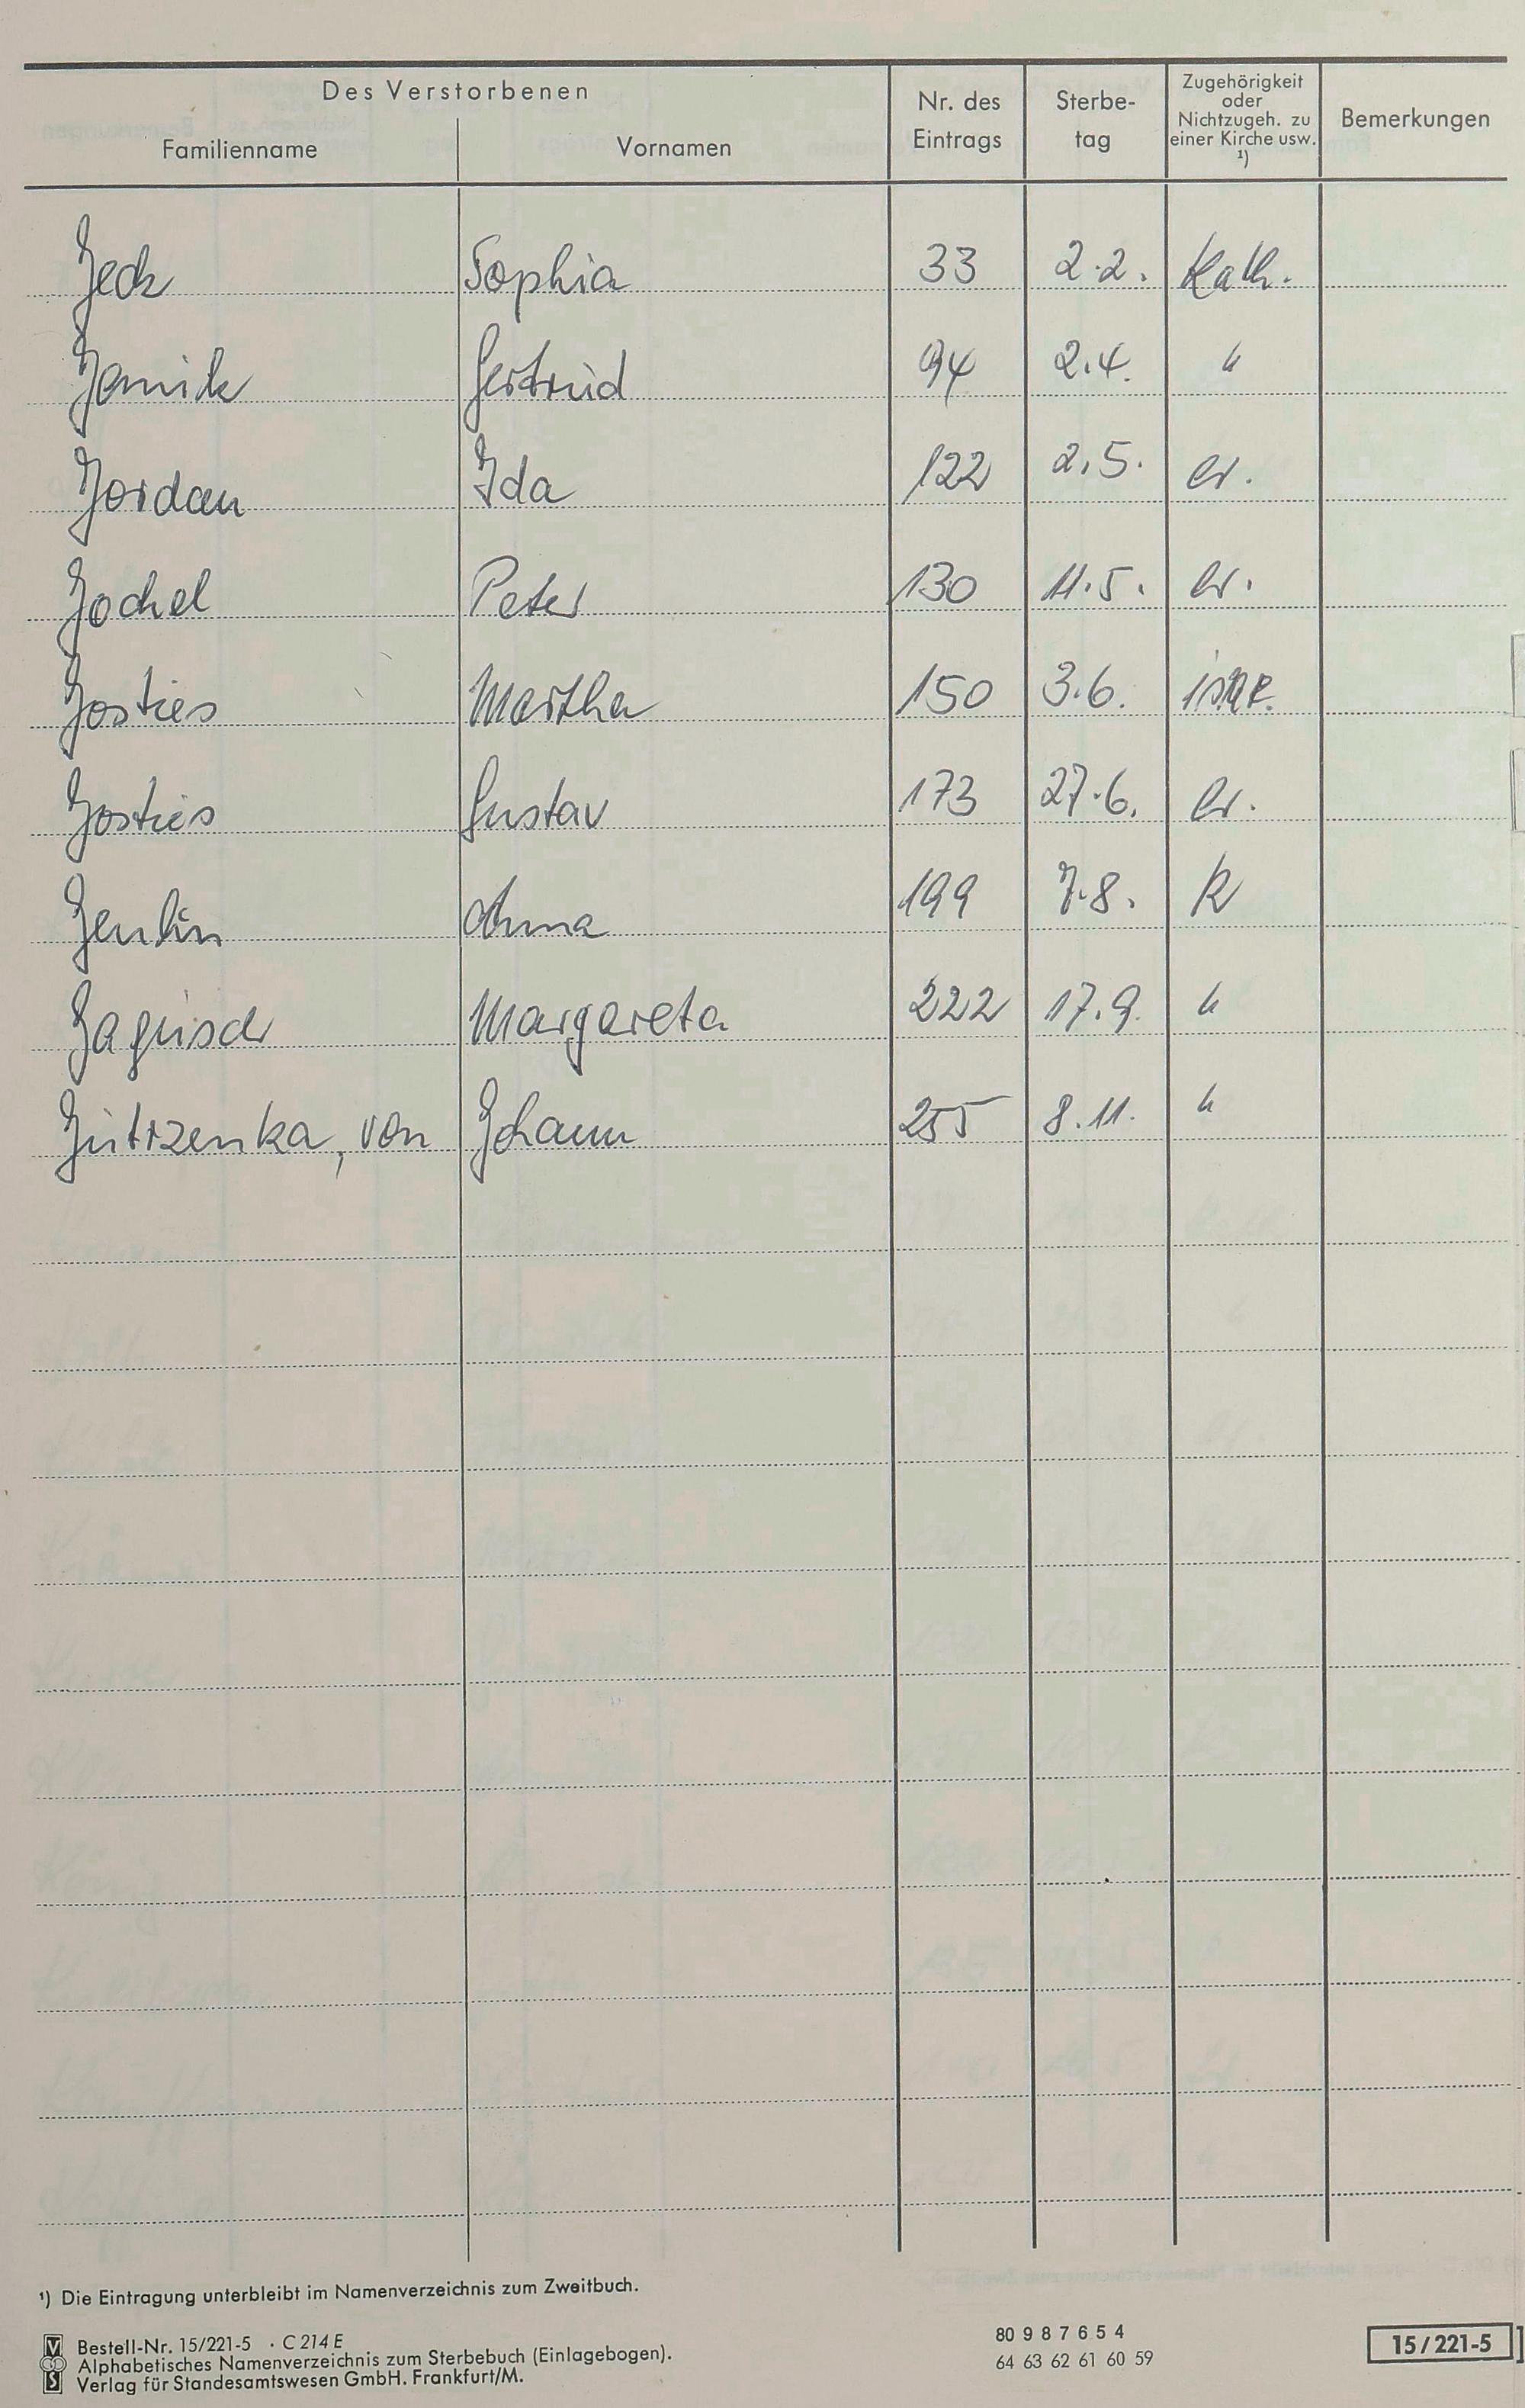 Des Verstorbenen
Familienname Vornamen Nr. des Eintrags Sterbe-tag Zugehörigkeit oder Nichtzugeh. zu einer Kirche usw. ¹) Bemerkungen
Jeck Sophia 33 2.2. Kath.
Janik Gertrud 94 2.4. "
Jordan Ida 122 2.5. ev.
Jochel Peter 130 11.5. ev.
Josties Martha 150 3.6.
Josties Gustav 173 27.6. ev.
Anna 199 7.8. k
Jagusch Margareta 222 17.9. "
Jutrzenka, von Johann 255 8.11. "
¹) Die Eintragung unterbleibt im Namenverzeichnis zum Zweitbuch.
Bestell-Nr. 15/221-5 · C 214 E
Alphabetisches Namenverzeichnis zum Sterbebuch (Einlagebogen).
Verlag für Standesamtswesen GmbH. Frankfurt/M.
80 9 8 7 6 5 4
64 63 62 61 60 59
15/221-5